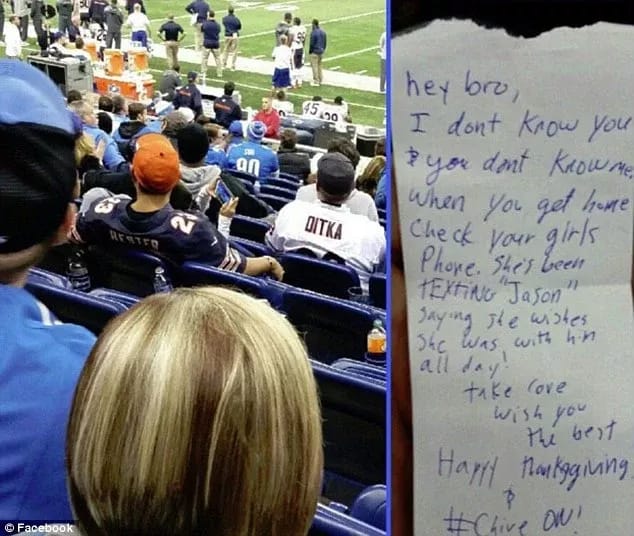 45
SUH
90
23
HESTER
DITKA
© Facebook
hey bro,
I dont know you
& you dont know me,
when you get home
check your girls
Phone. She's been
TEXTING "Jason"
Saying she wishes
She was with him
all day!
take care
wish you
the best
Happy thanksgiving
&
#Chive ON!